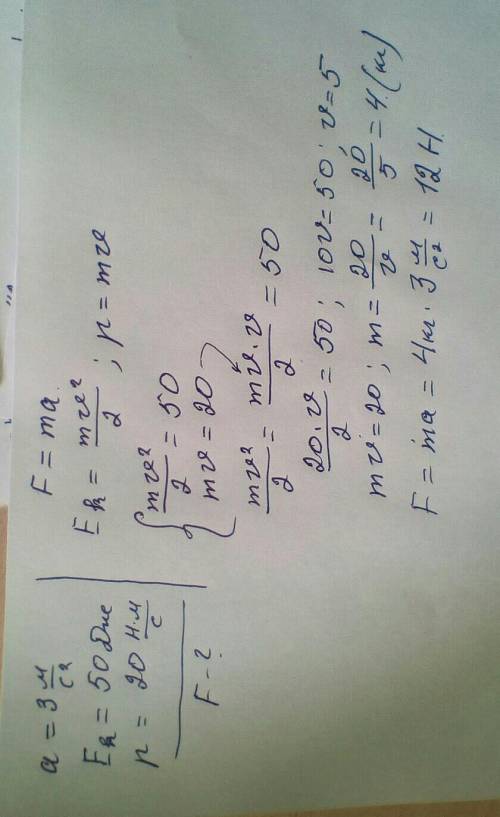 a = 3 м/с²
Eк = 50 Дж
p = 20 Н·м/с
F - ?
F = ma
Eк = mv²/2 ; p = mv
{ mv²/2 = 50
mv = 20
mv²/2 = mv·v/2 = 50
20·v/2 = 50 ; 10v = 50 ; v = 5
mv = 20 ; m = 20/v = 20/5 = 4 (кг)
F = ma = 4кг · 3 м/с² = 12 Н.